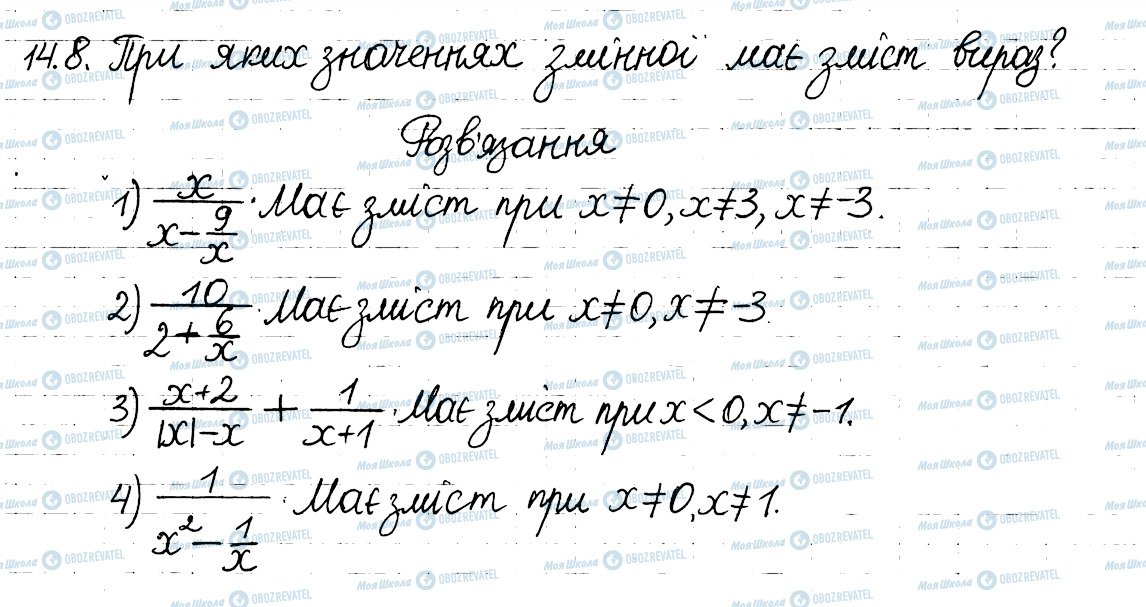 14.8. При яких значеннях змінної має зміст вираз?
Розв'язання
1) x / (x - 9/x). Має зміст при x≠0, x≠3, x≠-3.
2) 10 / (2 + 6/x). Має зміст при x≠0, x≠-3.
3) (x+2) / (|x|-x) + 1 / (x+1). Має зміст при x<0, x≠-1.
4) 1 / (x² - 1/x). Має зміст при x≠0, x≠1.
МояШкола OBOZREVATEL